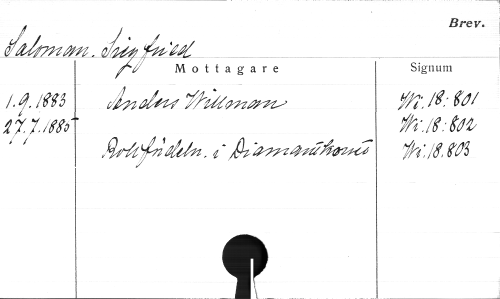 Brev.
Saloman. Siegfried
Mottagare Signum
1.9.1883 Anders Willman Wi. 18:801
27.7.1885 Wi. 18:802
Rollfördeln. i Diamantkorset Wi. 18.803